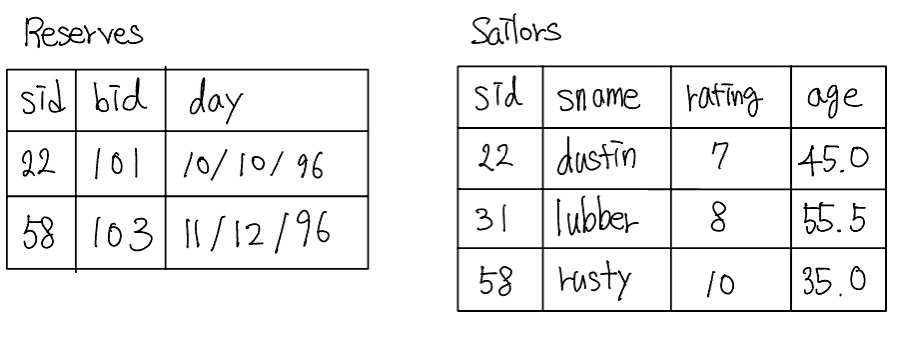 Reserves
sid bid day
22 101 10/10/96
58 103 11/12/96
Sailors
sid sname rating age
22 dustin 7 45.0
31 lubber 8 55.5
58 rusty 10 35.0